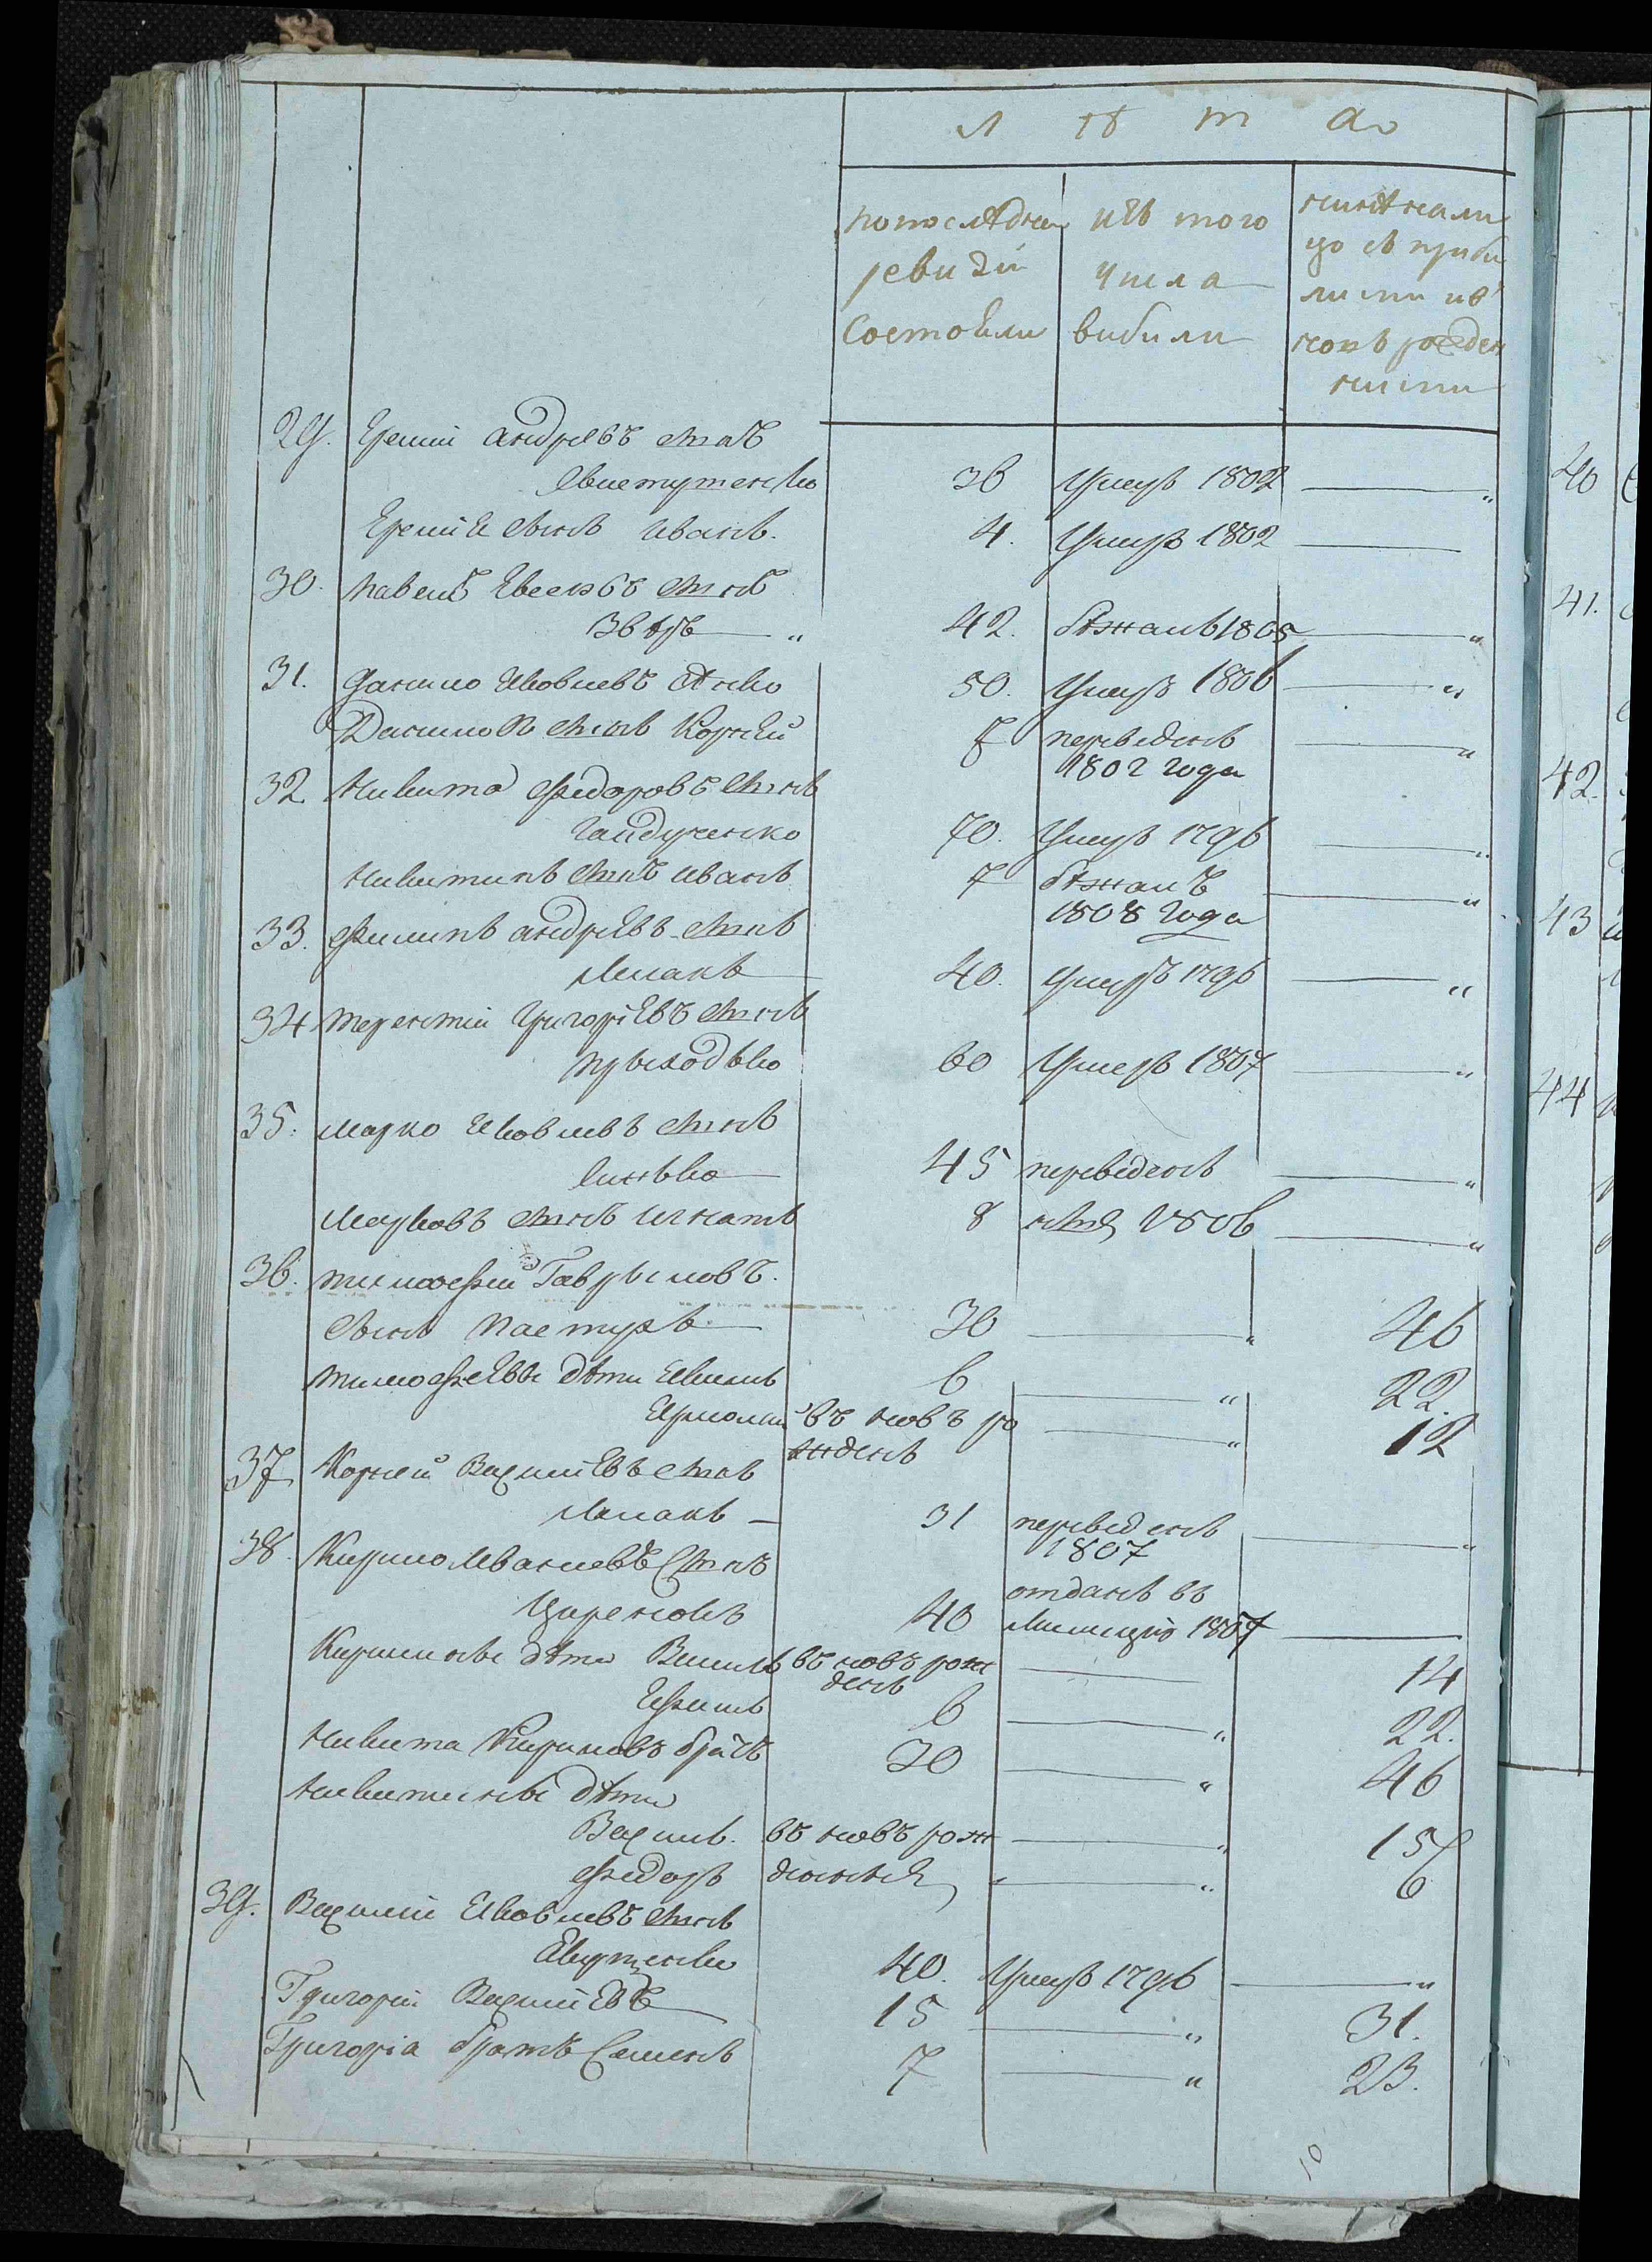 л ѣ т а
попослѣдней
ревизіи
состояли
изъ того
числа
вибили
нинѣ нали
цо съ приби
лими из
новъ рожден
ними
29. Еремій Андреевъ синъ
36 умеръ 1802
Еремѣя синъ Иванъ. 4. умеръ 1802
30. Павелъ Евсеевъ синъ
Звѣръ 42. бѣжалъ 1805
31. Данило Яковлевъ 50. умеръ 1806
Даниловъ синъ Корнѣй 7 переведенъ
1802 года
32. Никита Федоровъ синъ
Гайдученко 70. умеръ 1796
Никитинъ синъ Иванъ 7 бѣжалъ
1808 года
33. Филипъ Андреевъ синъ
40. умеръ 1796
34 Терентій Григоріевъ синъ
Приходько 60 умеръ 1807
35. Марко Яковлевъ синъ
Синько 45 переведенъ
Марковъ синъ Игнатъ 8 1806
36. Тимофей Гавриловъ.
синъ Пастухъ 30 46
Тимофеевы дѣти Якимъ 6 22.
Ярмолай въ новъ ро 12
жденъ
37 Корней Василіевъ синъ
31 переведенъ
1807
38. Кирило Иваневъ синъ
отданъ въ
40 милицію 1807
Кирилины дѣти Василь въ новъ рож 14
денъ
Юхимъ 6 22.
Никита Кириловъ братъ 30 46
Никитины дѣти
Василь. въ новъ рож 15
Федоръ 6
39. Василій Яковлевъ синъ
Якутенко 40. умеръ 1796
Григорій Василіевъ 15 31.
Григорія братъ Семенъ 7 23.
10
40
41.
42.
43
44